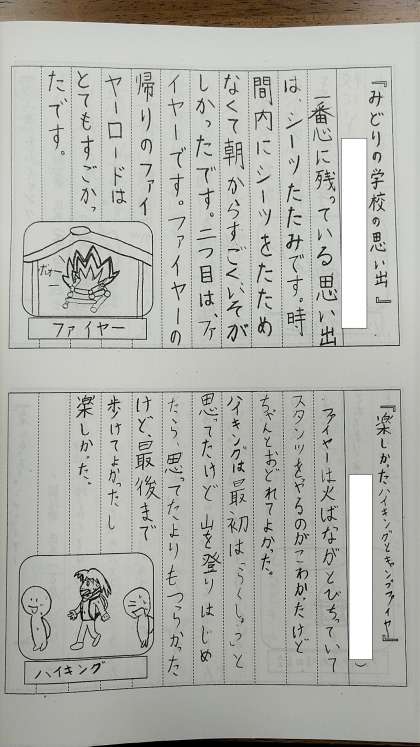 『みどりの学校の思い出』
一番心に残っている思い出
は、シーツたたみです。時
間内にシーツをたためな
なくて朝からすごくいそが
しかったです。二つ目は、ファ
イヤーです。ファイヤーの
帰りのファイ
ヤーロードは
とてもすごかっ
たです。
ファイヤー
『楽しかったハイキングとキャンプファイヤー』
ファイヤーは火ばながとびちっていて
スタンツをやるのがこわかったけど
ちゃんとおどれてよかった。
ハイキングは最初は「らくしょう」と
思ってたけど山を登りはじめ
たら、思ってたよりもつらかった
けど、最後まで
歩けてよかったし
楽しかった。
ハイキング